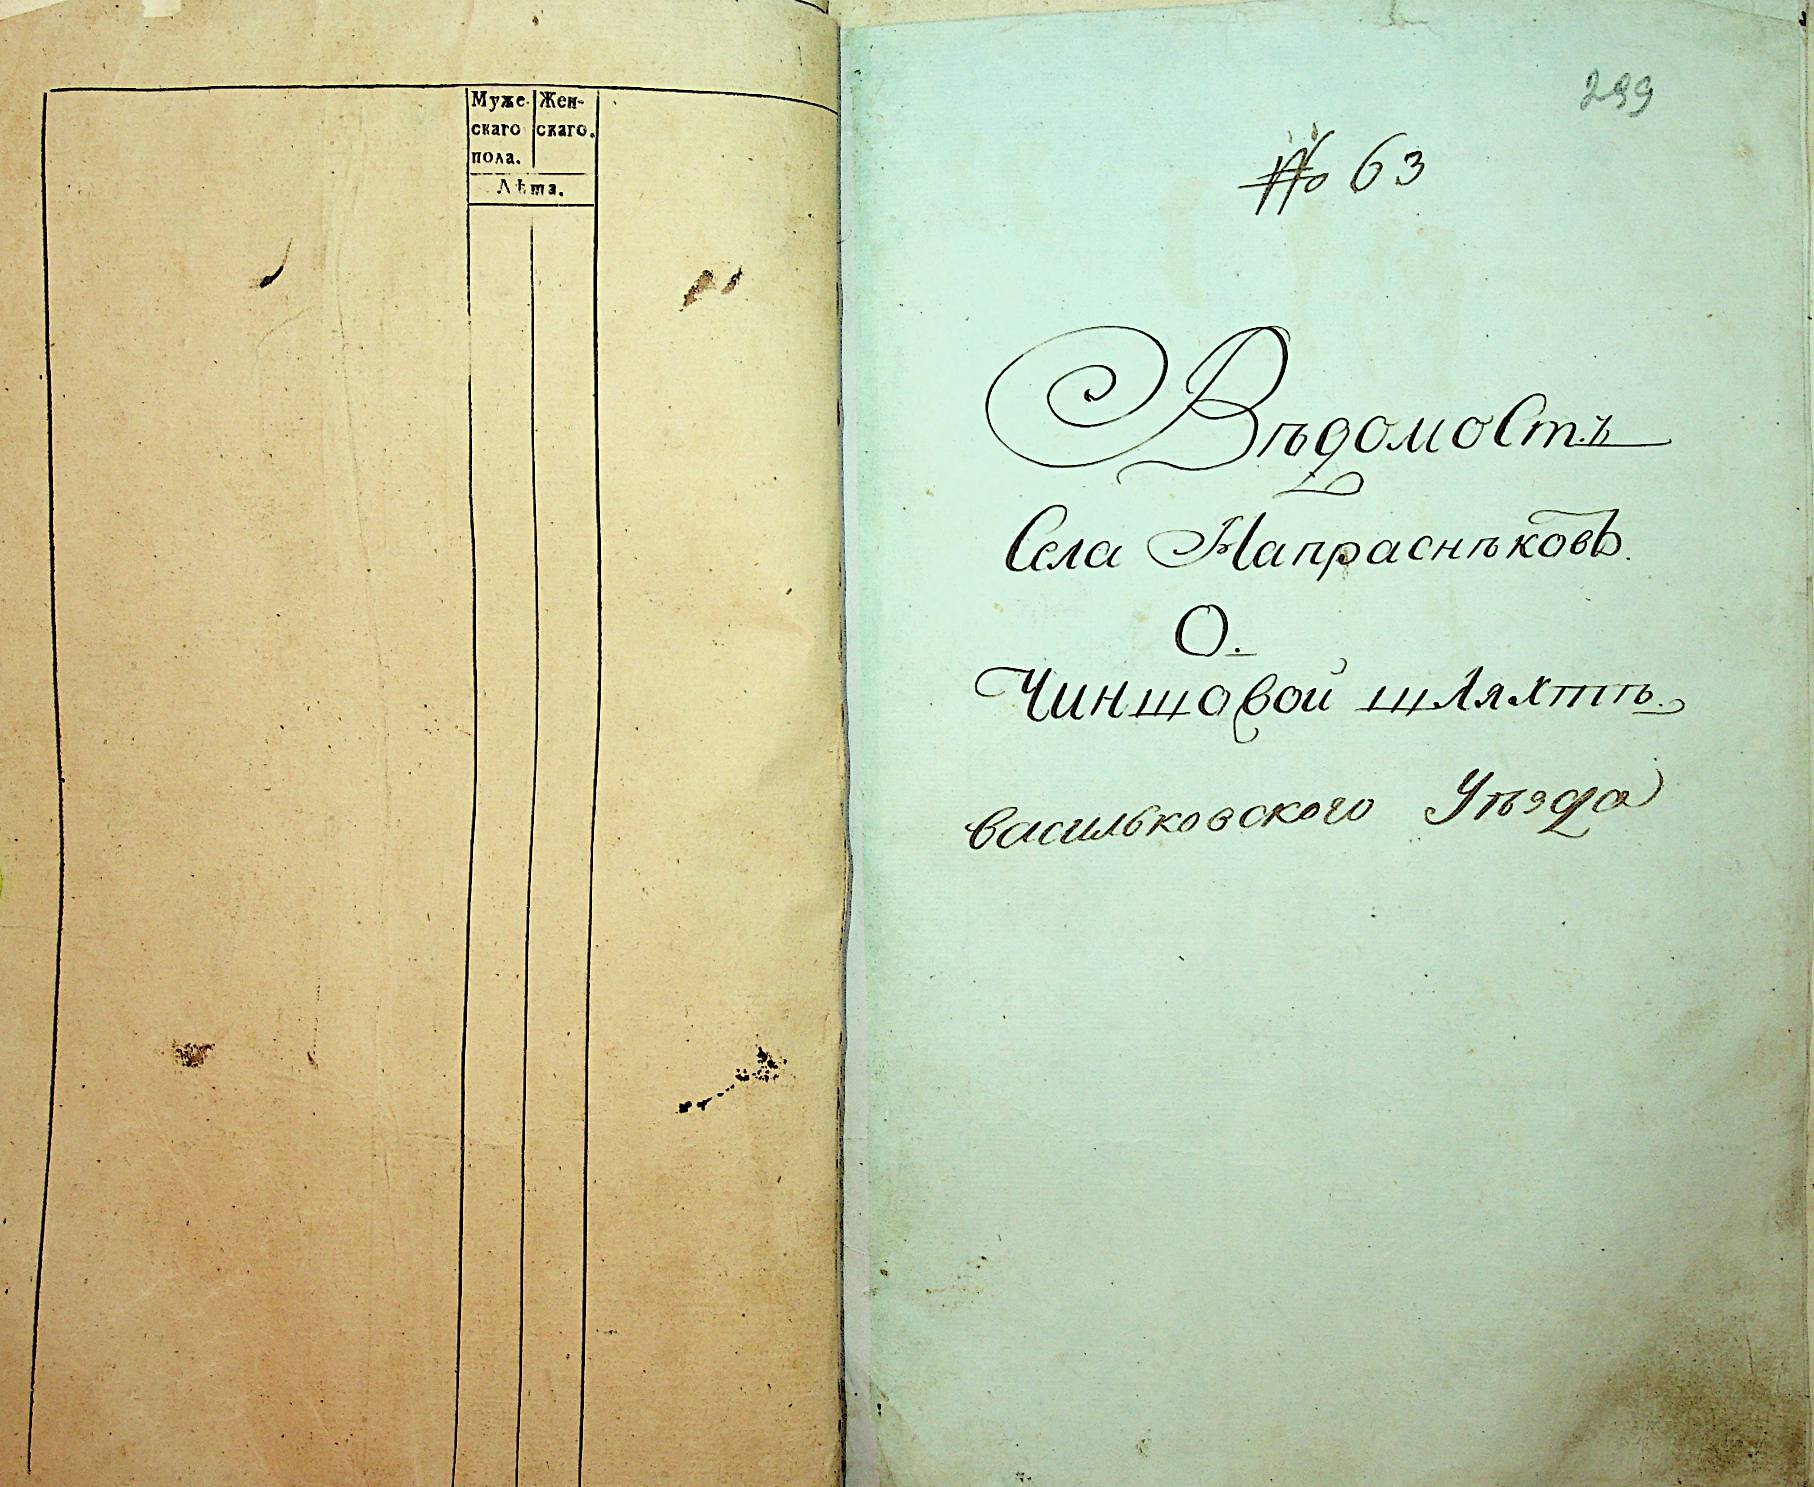 Муже- Жен-
скаго скаго.
пола.
Лѣта.
299
№ 63
Вѣдомость
Села Напраснѣковъ.
О.
Чиншовой шляхтѣ.
васильковского Уѣзда